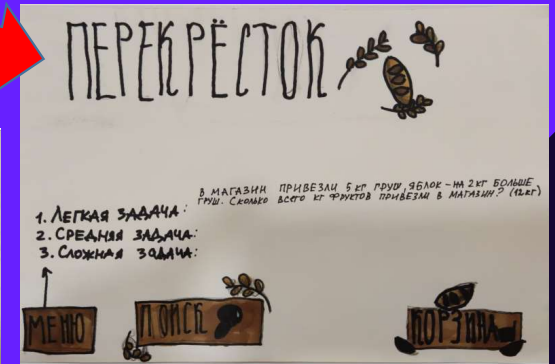 ПЕРЕКРЁСТОК
В МАГАЗИН ПРИВЕЗЛИ 5 КГ ГРУШ, ЯБЛОК – НА 2 КГ БОЛЬШЕ
ГРУШ. СКОЛЬКО ВСЕГО КГ ФРУКТОВ ПРИВЕЗЛИ В МАГАЗИН? (12кг)
1. ЛЕГКАЯ ЗАДАЧА:
2. СРЕДНЯЯ ЗАДАЧА:
3. СЛОЖНАЯ ЗАДАЧА:
МЕНЮ
ПОИСК
КОРЗИНА